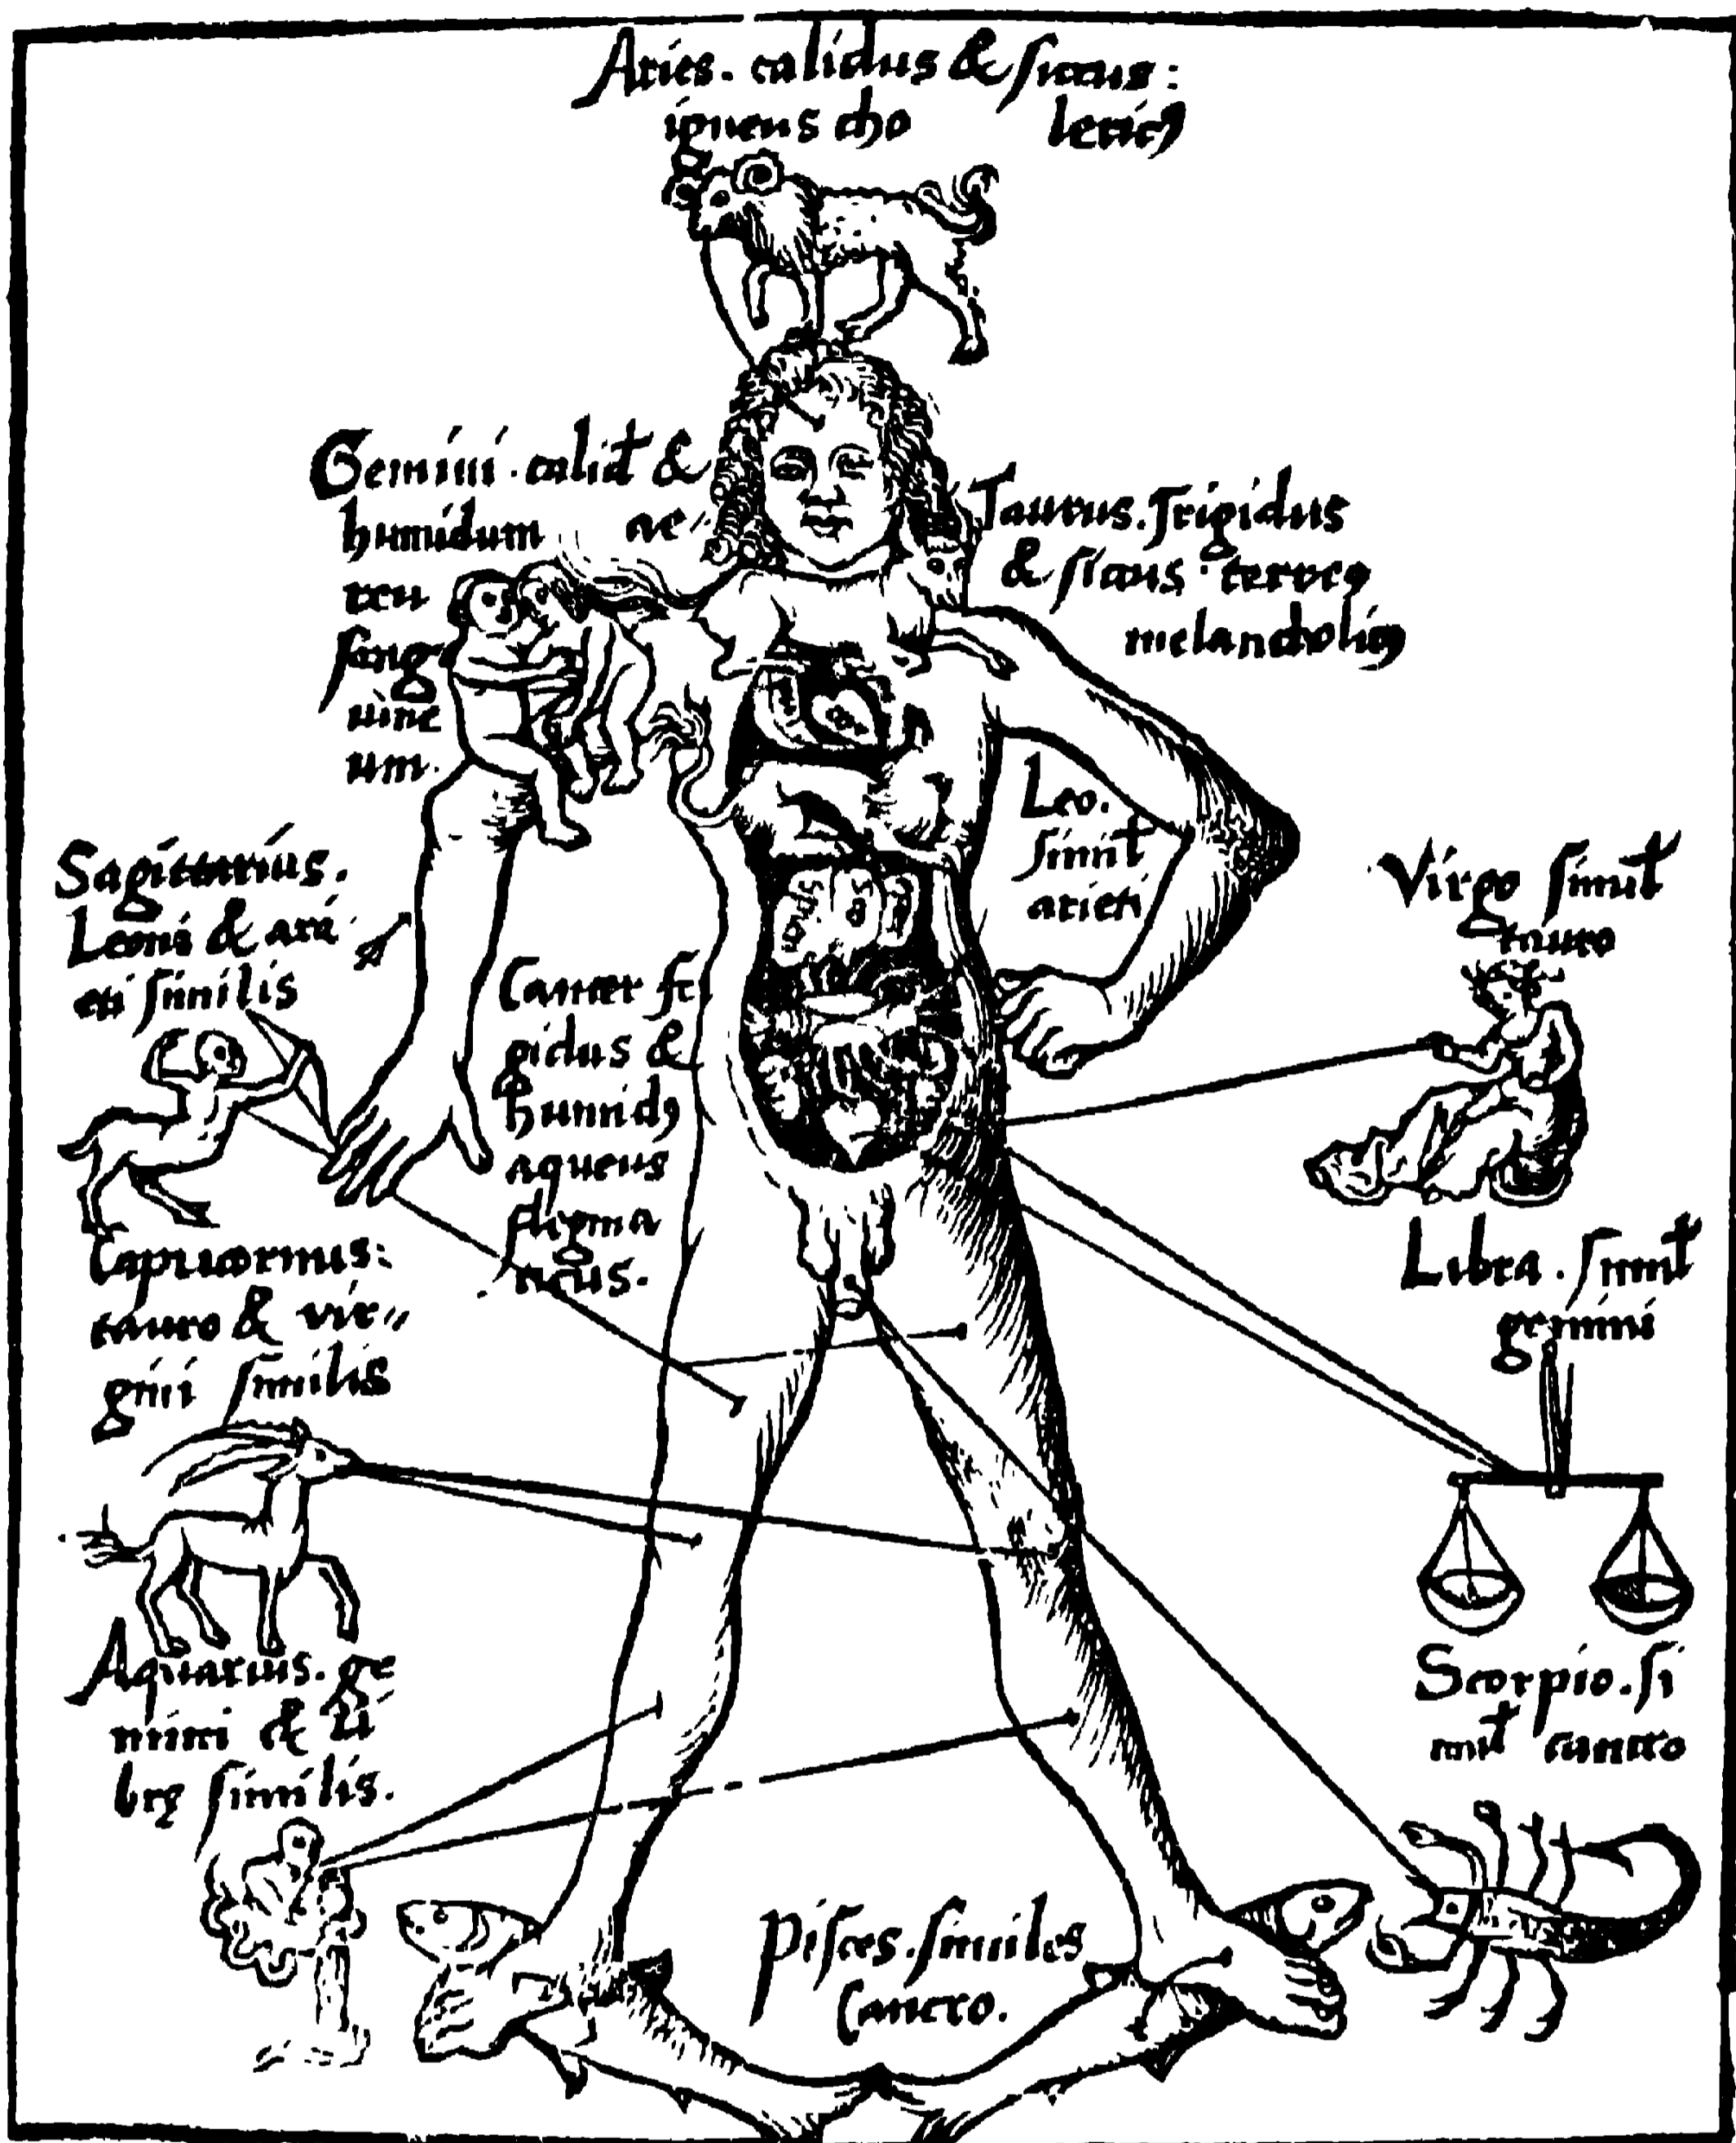 Aries. calidus & siccus:
igneus cho lericꝰ
Gemini. calid &
humidum ae-
reu
sang
uine
um.
Taurus. frigidus
& siccus terreꝰ
melancholicꝰ
Leo.
simil
arieti
Sagittarius.
Leoni & ari
eti similis
Cancer fri
gidus &
humidꝰ
aqueus
flegma
ticus.
Virgo simil
tauro
Capricornus:
tauro & vir-
gini similis
Libra. simil
gemini
Aquarius. ge
mini & li
brę similis.
Scorpio. si
mil cancro
Pisces. similes
Cancro.